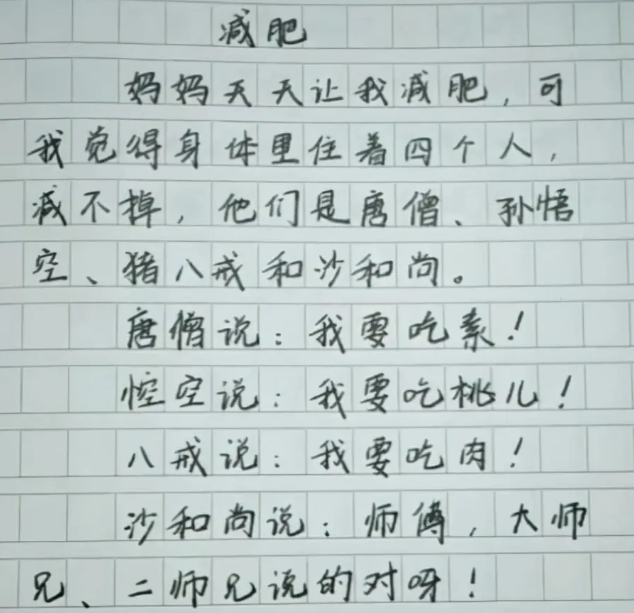 减肥
妈妈天天让我减肥，可
我觉得身体里住着四个人，
减不掉，他们是唐僧、孙悟
空、猪八戒和沙和尚。
唐僧说：我要吃素！
悾空说：我要吃桃儿！
八戒说：我要吃肉！
沙和尚说：师傅，大师
兄、二师兄说的对呀！